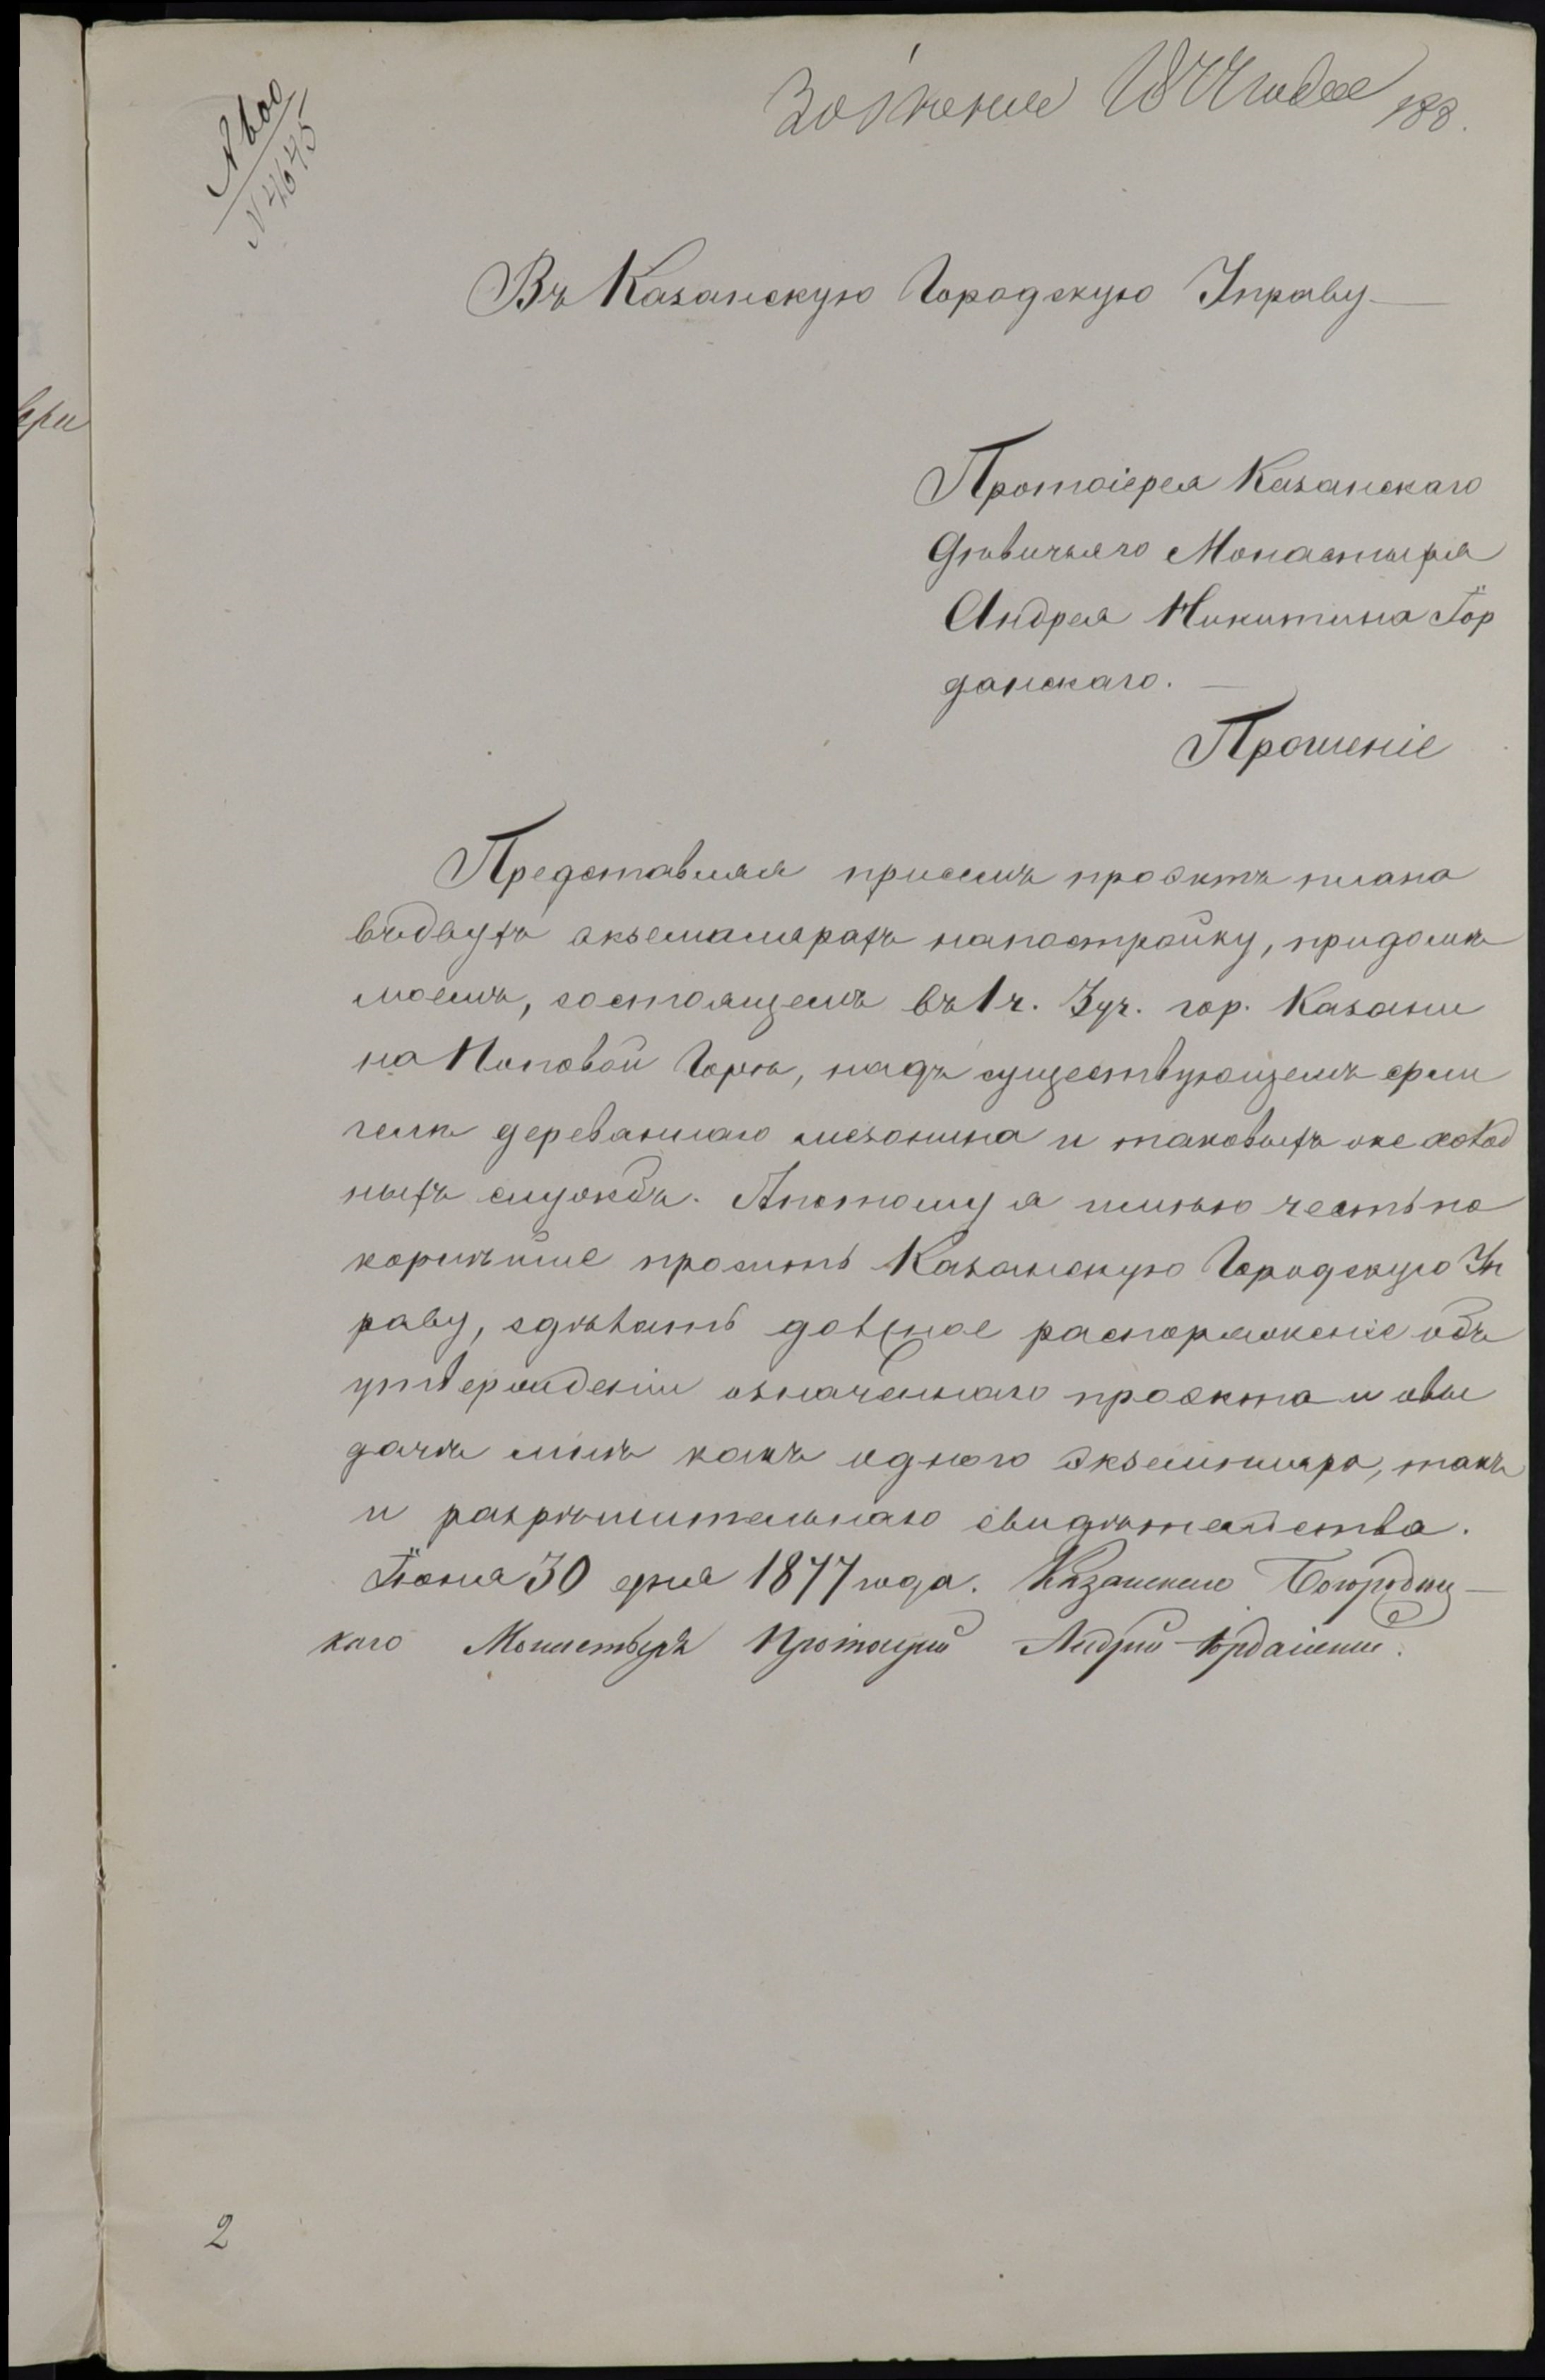 30 Iюня 1877 года 188.
№ 600
№ 4645
Въ Казанскую Городскую Управу
Протоiерея Казанскаго
Дѣвичьяго Монастыря
Андрея Никитина Iор
данскаго.
Прошенiе
Представляя присемъ проэктъ плана
въдвухъ экземплярахъ напостройку, придомѣ
моемъ, состоящемъ въ 1 ч. 3 уч. гор. Казани
на Поповой Горѣ, надъ существующемъ фли
гелѣ деревяннаго мезонина и таковыхъ же холод
ныхъ службъ. Апотому я имѣю честь по
корнѣйше просить Казанскую Городскую Уп
раву, сдѣлать должное распоряженiе объ
утвержденiи означеннаго проэкта и овы
дачѣ мнѣ какъ одного экземпляра, такъ
и разрѣшительнаго свидѣтельства.
Iюня 30 дня 1877 года. Казанскаго Богородиц-
каго Монастыря Протоiерей Андрей Iорданскiй.
2